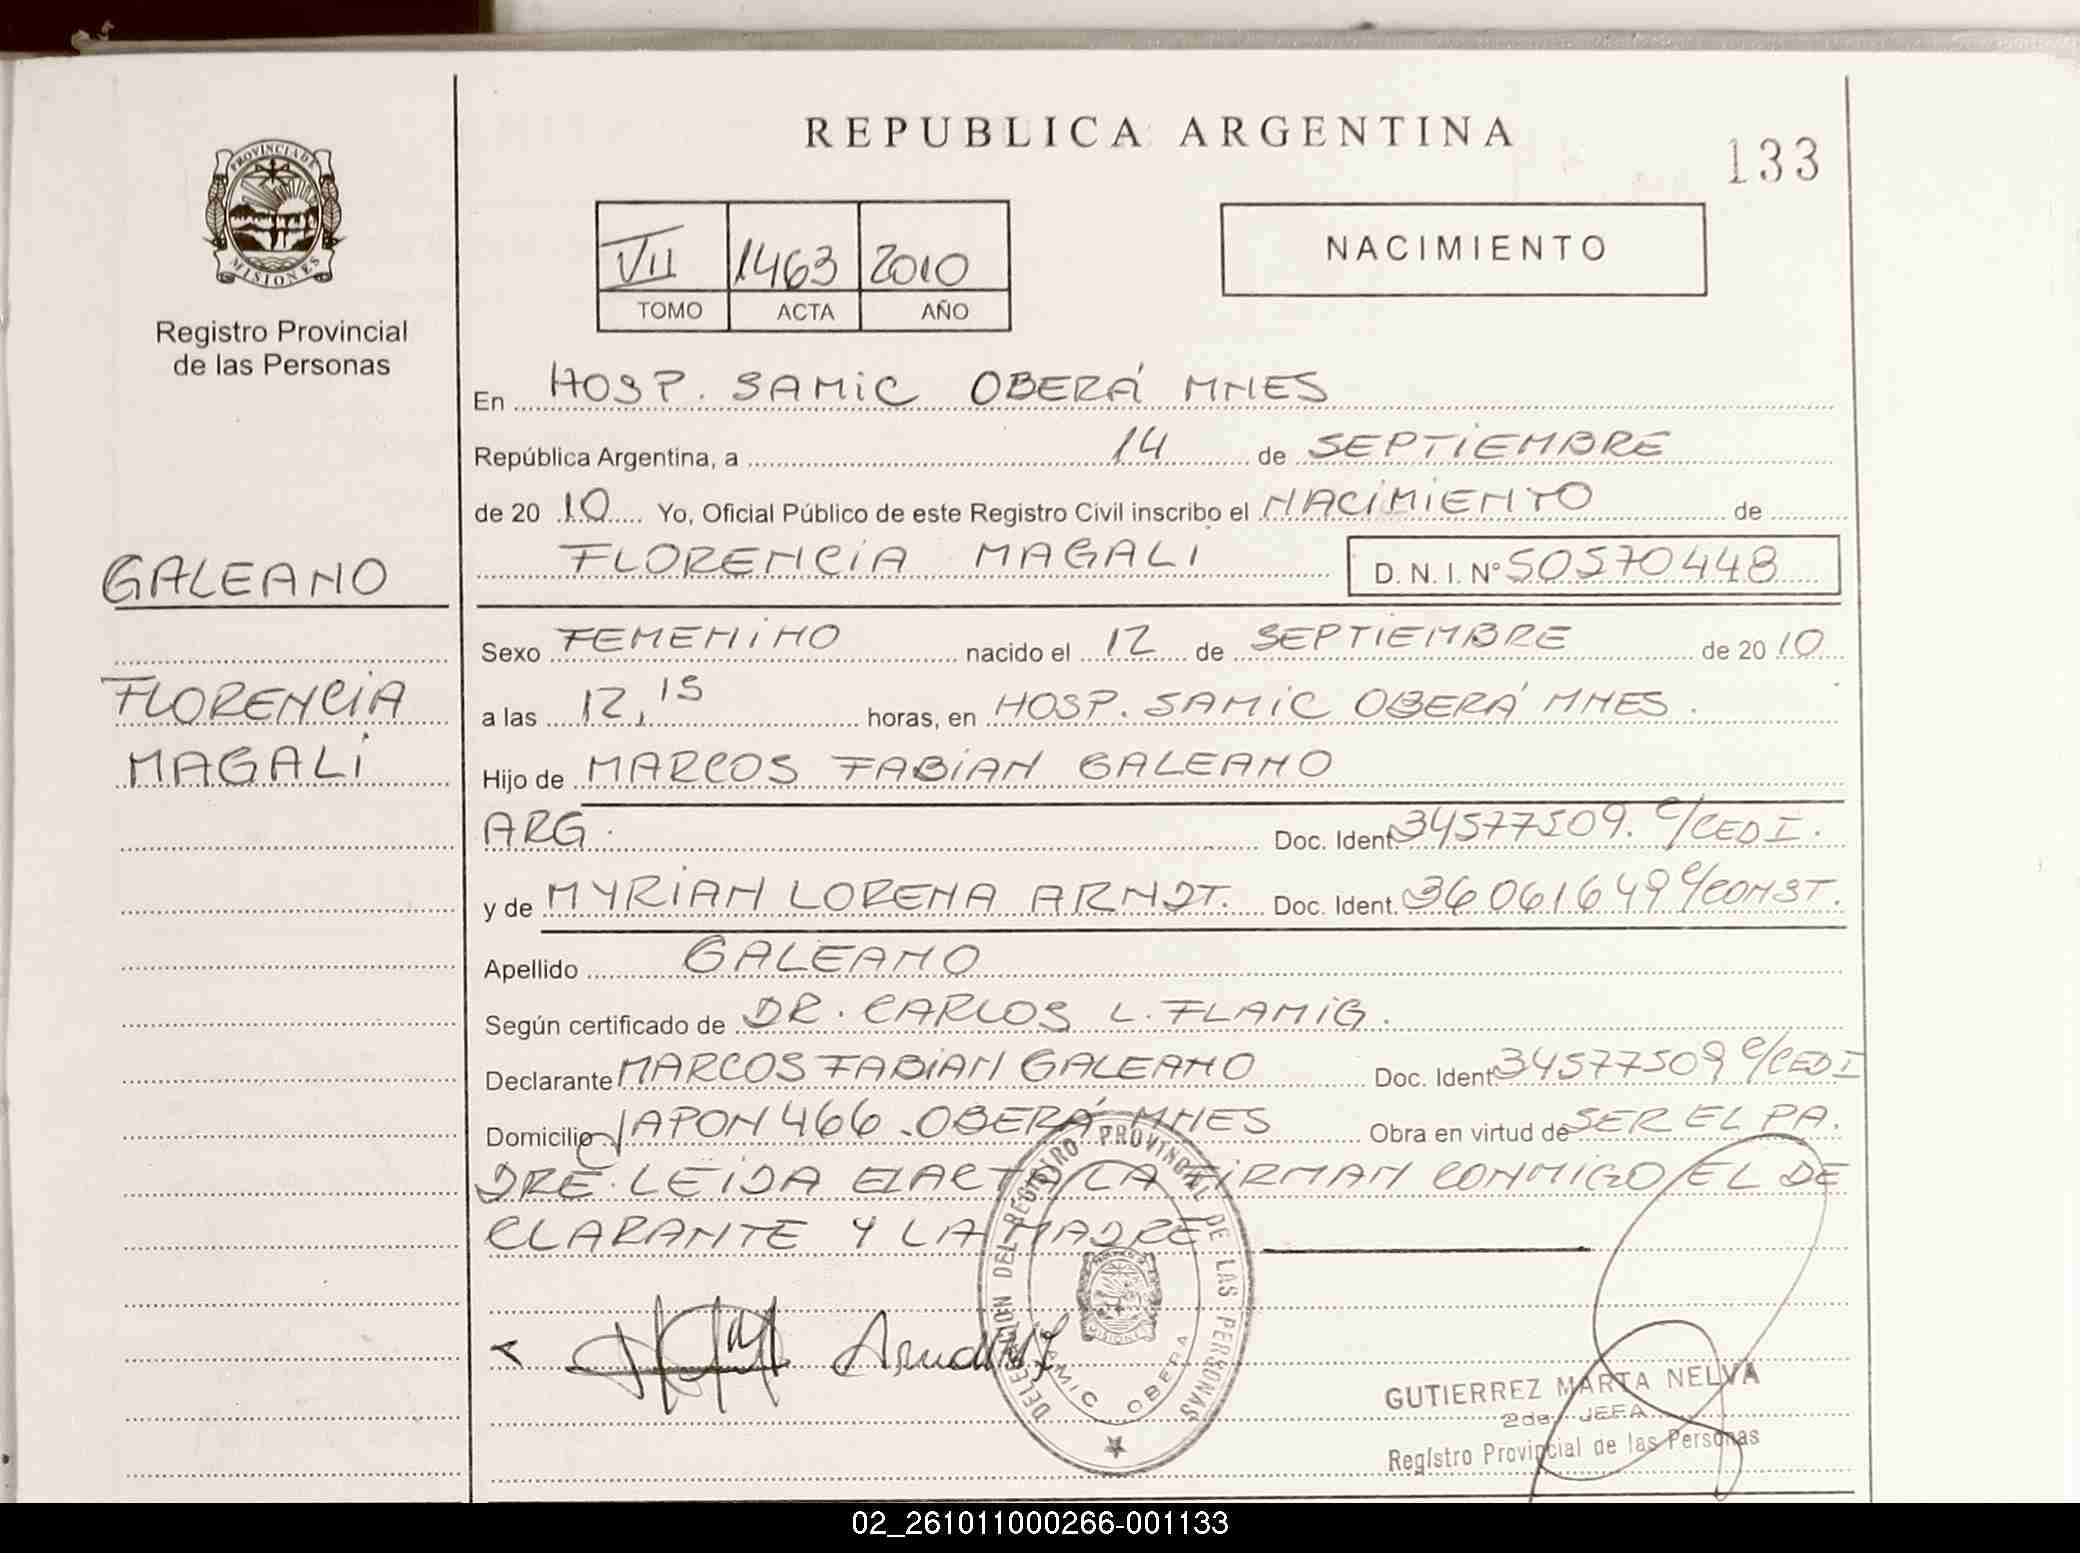 REPUBLICA ARGENTINA
133
PROVINCIA DE
MISIONES
Registro Provincial
de las Personas
VII 1463 2010
TOMO ACTA AÑO
NACIMIENTO
En HOSP. SAMIC OBERÁ MNES
República Argentina, a 14 de SEPTIEMBRE
de 20 10 Yo, Oficial Público de este Registro Civil inscribo el NACIMIENTO de
FLORENCIA MAGALI D. N. I. N° 50570448
GALEANO
FLORENCIA
MAGALI
Sexo FEMENINO nacido el 12 de SEPTIEMBRE de 20 10
a las 12,15 horas, en HOSP. SAMIC OBERÁ MNES.
Hijo de MARCOS FABIAN GALEANO
ARG. Doc. Ident. 34577509. C/CEDI.
y de MYRIAN LORENA ARNDT. Doc. Ident. 36061649 C/CONST.
Apellido GALEANO
Según certificado de DR. CARLOS L. FLAMIG.
Declarante MARCOS FABIAN GALEANO Doc. Ident. 34577509 C/CEDI
Domicilio JAPON 466. OBERÁ MNES Obra en virtud de SER EL PA.
DRE. LEIDA EL ACTA LA FIRMAN CONMIGO EL DE
CLARANTE Y LA MADRE
DELEGACION DEL REGISTRO PROVINCIAL DE LAS PERSONAS
SAMIC OBERA
MISIONES
GUTIERREZ MARTA NELVA
2da. JEFA
Registro Provincial de las Personas
02_261011000266-001133